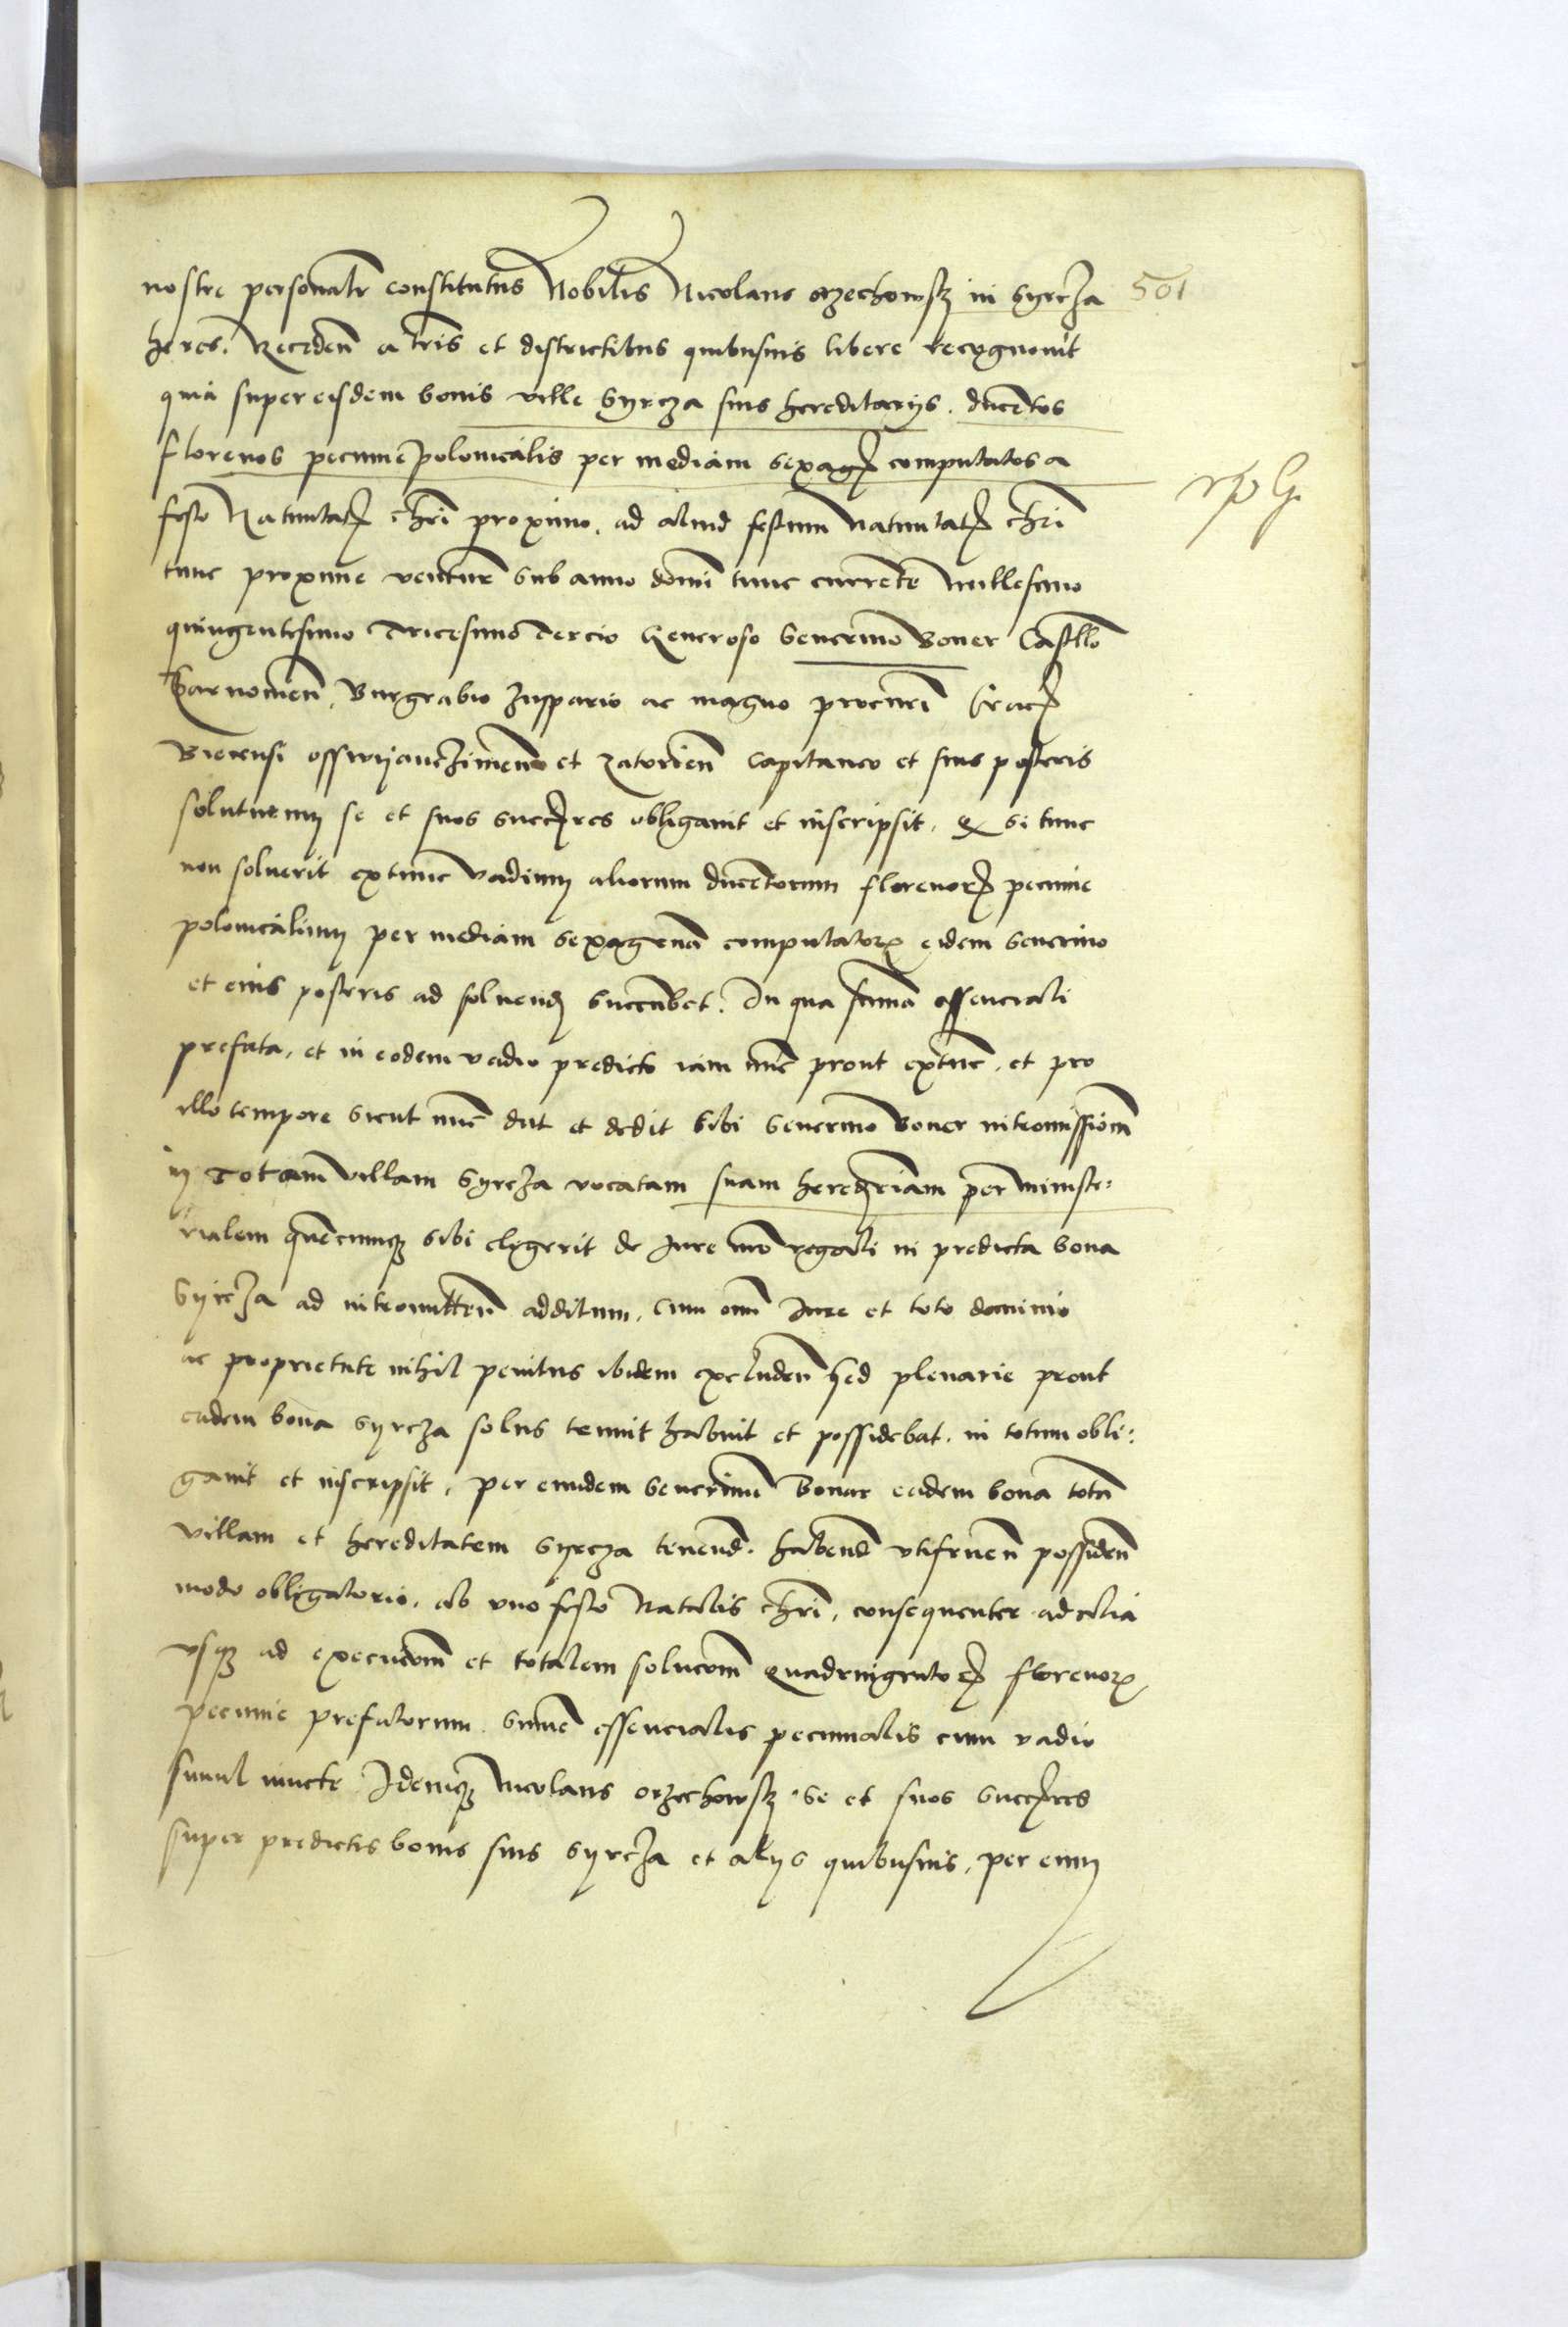 nostre personalr constitutus Nobilis Nicolaus orzechowsky in Syrcza 501
heres. Recedeñ a tris et districtibus quibusuis libere recognouit
quia super eisdem bonis ville Syrcza suis hereditarijs. ducētos
florenos pecunie polonicalis per mediam sexag computatos a
festo Natiuitat chri proximo. ad aliud festum natiuitat chri
tunc proxime venturū sub anno domi tunc currente Millesimo
quingentesimo Tricesimo tercio Generoso Seuerino Boner Castlo
Sarnowieñ. Burgrabio Zuppario ac magno procuri Crac
Biecensi osswijanczimeñ et Zatorieñ Capitaneo et suis posteris
soluturum se et suos succres obligauit et inscripsit. Et si tunc
non soluerit extunc vadium aliorum ducentorum florenor pecunie
polonicalium per mediam sexagenā computator eidem Seuerino
et eius posteris ad soluend succūbet. In qua sūma essenciali
prefata. et in eodem vadio predicto iam nūc prout extūc. et pro
illo tempore sicut nūc dat et dedit sibi Seuerino Boner intromissiom
in Totam villam Syrcza vocatam suam herediriam per ministe:
rialem quēcumq sibi elegerit de iure regali in predicta bona
Syrcza ad intromitteñ additum. cum omi iure et toto dominio
ac proprietate nihil penitus ibidem excludeñ sed plenarie prout
eadem bona Syrcza solus tenuit habuit et possidebat. in totum obli:
gauit et inscripsit. per eundem Seuerinū Boner eadem bona totā
villam et hereditatem Syrcza tenend. habend vtifrueñ possideñ
modo obligatorio. ab vno festo Natalis chri. consequenter ad alia
vsq ad execucom et totalem solucom quadringentor florenor
pecunie prefatorum. sūme essencialis pecunialis cum vadio
simul iuncte Idemq Nicolaus orzechowsky se et suos succres
super predictis bonis suis Syrcza et alijs quibusuis. per eum